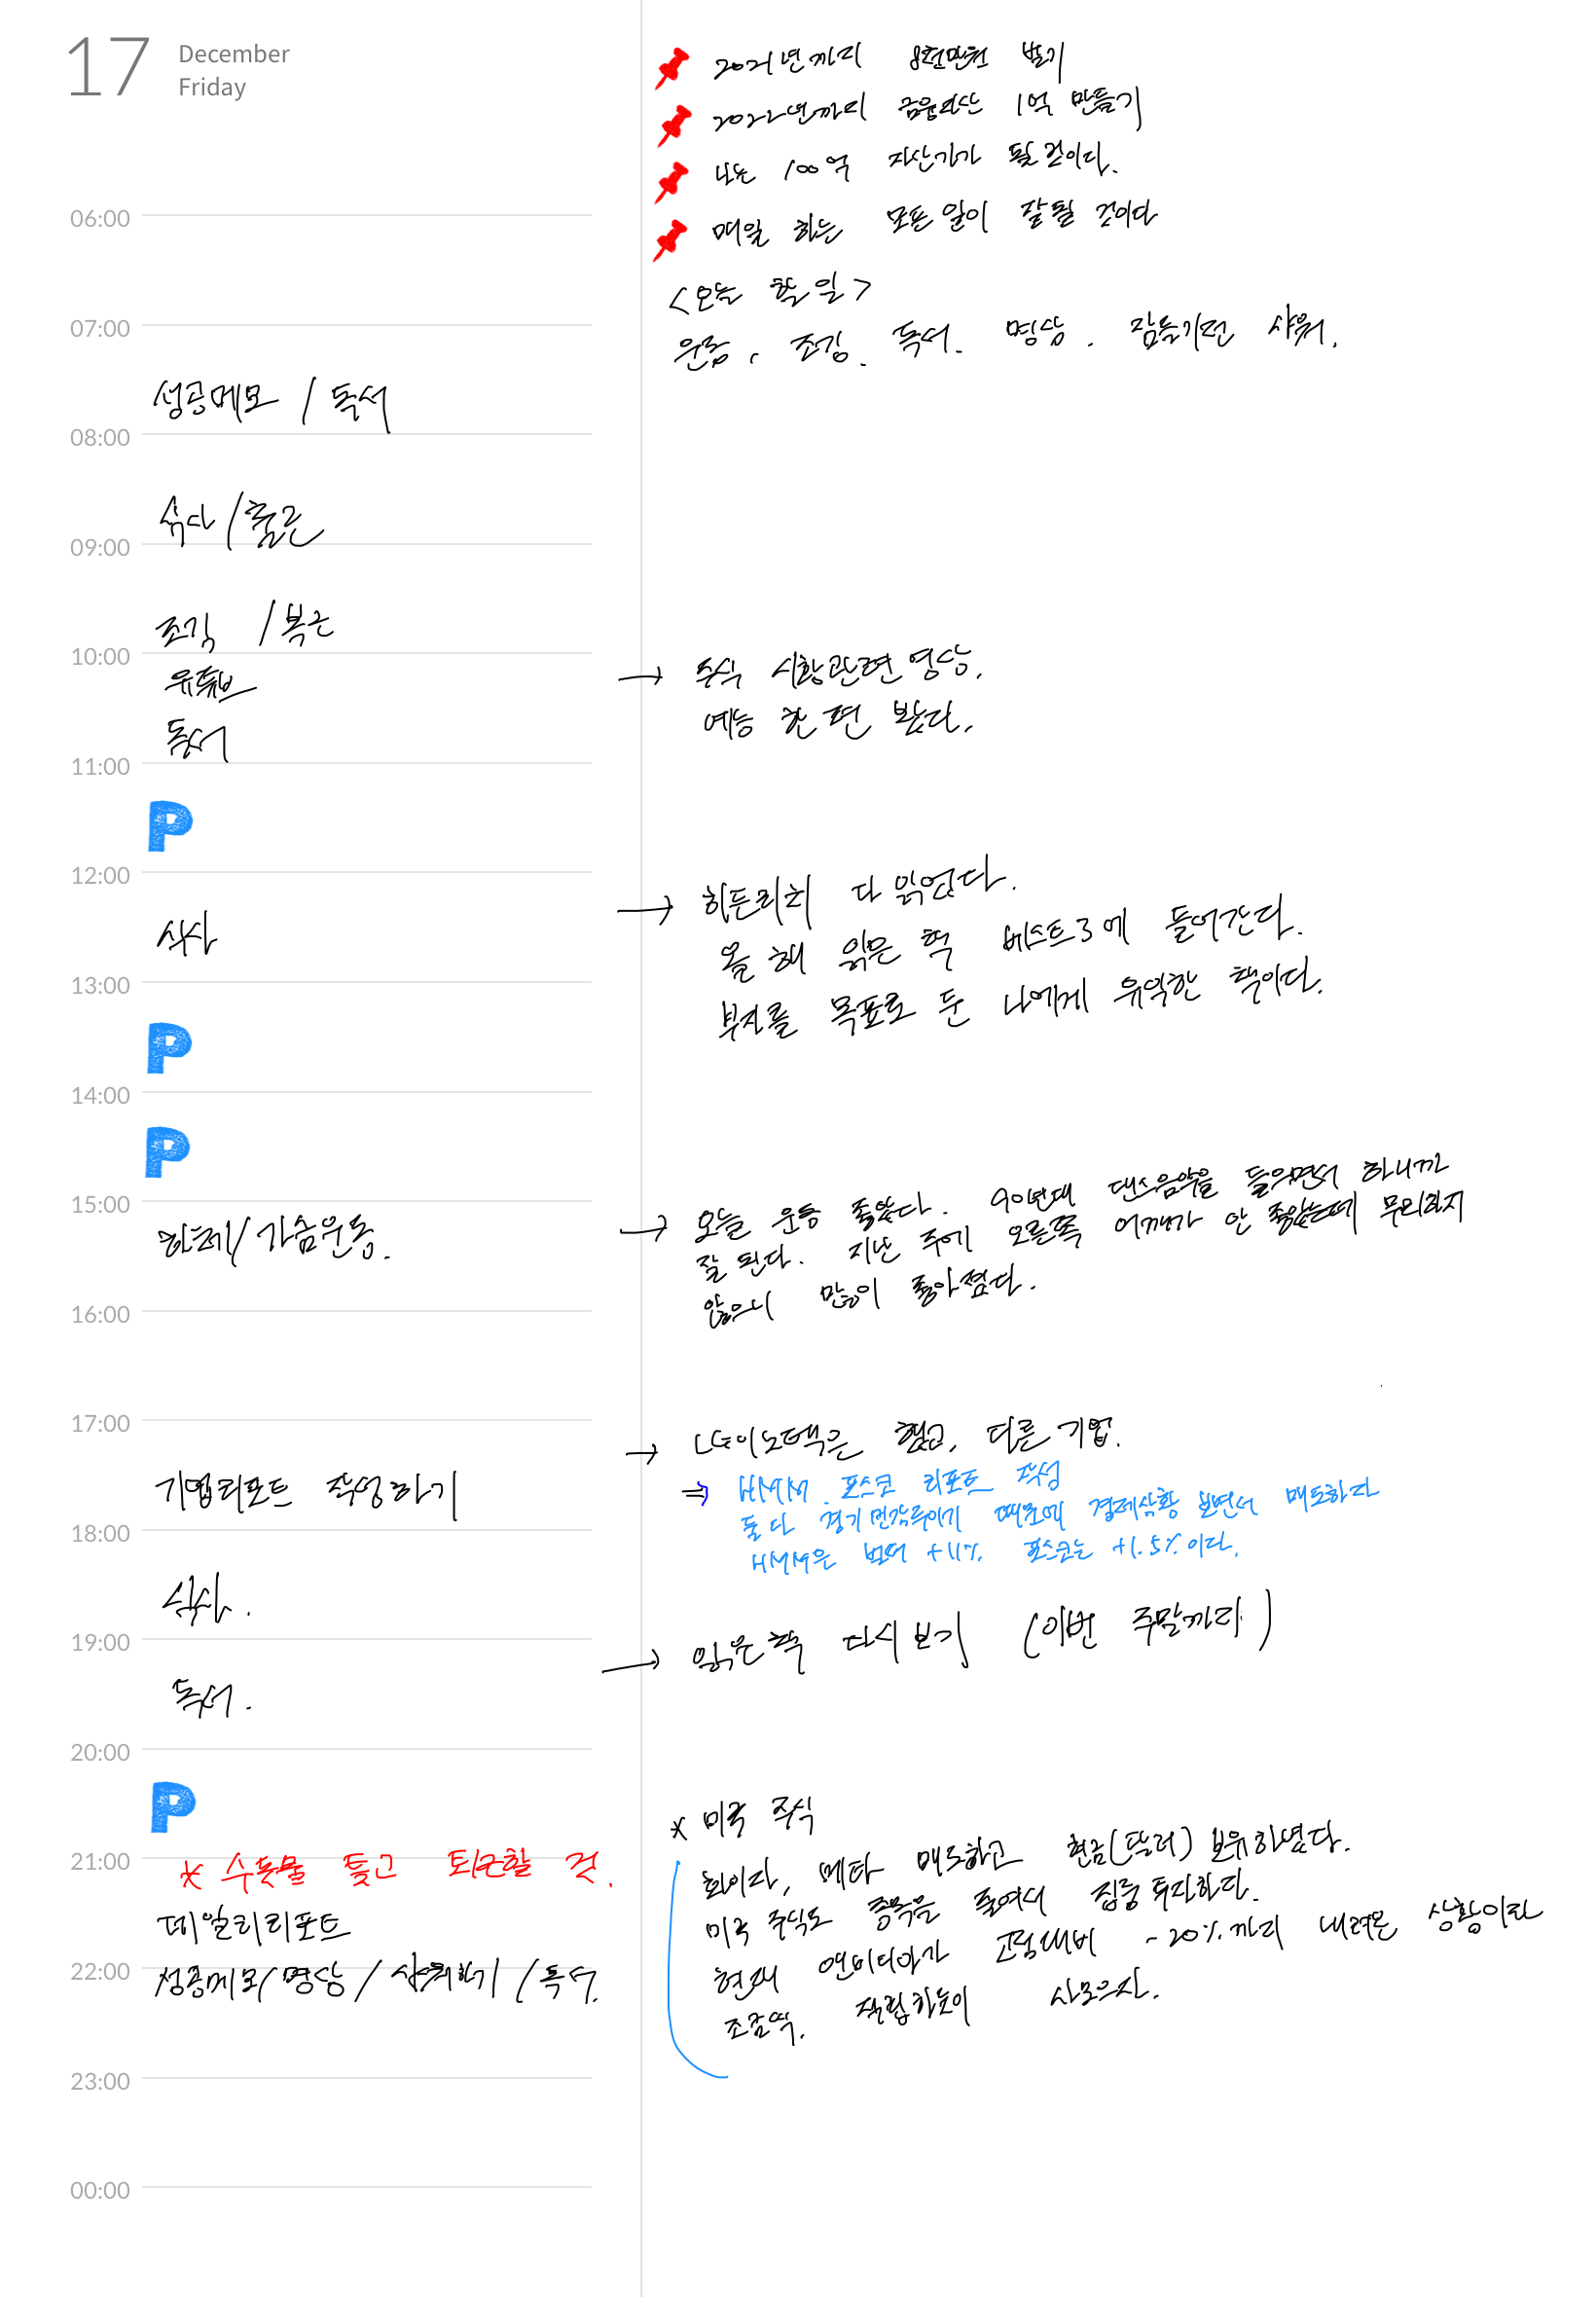 17 December
Friday
06:00
07:00
성공메모 / 독서
08:00
슈다 / 출근
09:00
조깅 / 복근
10:00
유튜브
독서
11:00
P
12:00
식사
13:00
P
14:00
P
15:00
하체/가슴운동.
16:00
17:00
기업리포트 작성하기
18:00
식사.
19:00
독서.
20:00
P
21:00
* 수돗물 틀고 퇴근할 것.
데일리리포트
22:00
성공메모/명상 / 샤워하기 / 독서.
23:00
00:00
2021년까지 8천만원 벌기
2022년까지 금융자산 1억 만들기
나는 100억 자산가가 될 것이다.
매일 하는 모든 일이 잘될 것이다
<오늘 할 일>
운동, 조깅. 독서. 명상. 잠들기전 샤워.
→ 주식 시황관련 영상.
예능 한 편 봤다.
→ 히든리치 다 읽었다.
올 해 읽은 책 베스트3에 들어간다.
부자를 목표로 둔 나에게 유익한 책이다.
→ 오늘 운동 좋았다. 90년대 댄스음악을 들으면서 하니까
잘 된다. 지난 주에 오른쪽 어깨가 안 좋았는데 무리하지
않으니 많이 좋아졌다.
→ LG이노텍은 헀고, 다른 기업.
⇒ HMM 포스코 리포트 작성
둘 다 경기민감주이기 때문에 경제상황 보면서 매도하자
HMM은 벌써 +11% 포스코는 +1.5%이다.
→ 읽은책 다시보기 (이번 주말까지)
* 미국 주식
화이자, 메타 매도하고 현금(달러) 보유하였다.
미국 주식도 종목을 줄여서 집중 투자하자.
현재 엔비디아가 고점대비 -20%까지 내려온 상황이라
조금씩. 적립하듯이 사모으자.